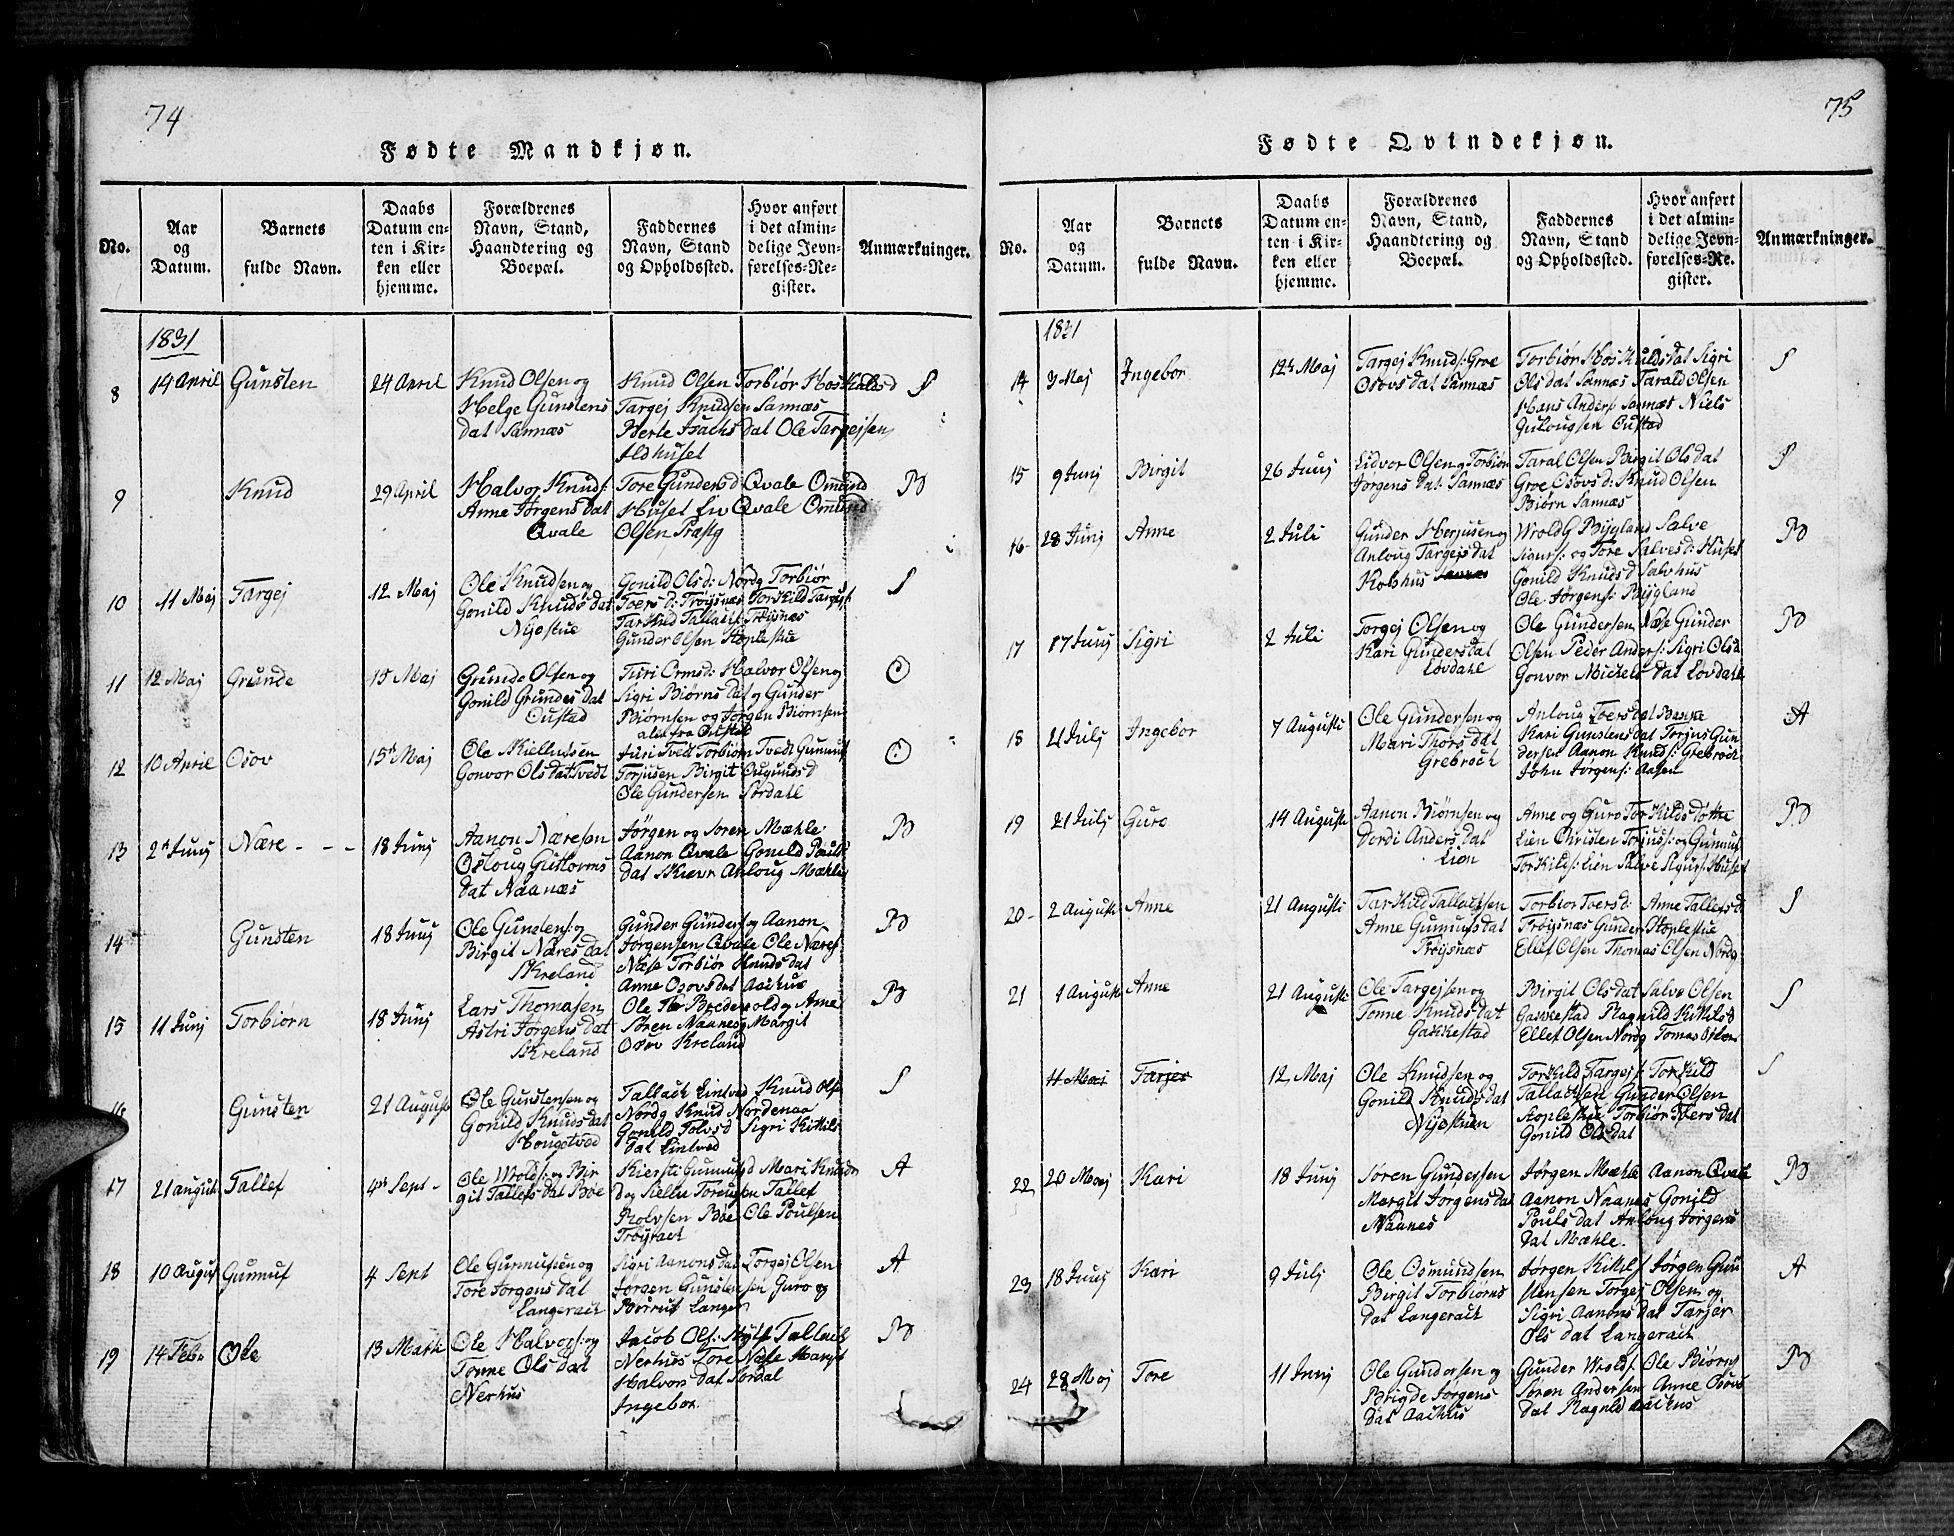 74
Fødte Mandkjøn.
No.
Aar
og
Datum.
Barnets
fulde Navn.
Daabs
Datum en-
ten i Kir-
ken eller
hjemme.
Forældrenes
Navn, Stand,
Haandtering og
Boepæl.
Faddernes
Navn, Stand
og Opholdssted.
Hvor anført
i det almin-
delige Jevn-
førelses-Re-
gister.
Anmærkninger.
1831
8 14 April Gunsten 24 April S
Knud Olsen og
Helge Gunstens
dat Sannæs
Knud Olsen Torbiør
Targej Knudsen Sannæs
dat Ole Targejsen
Ildhuset
9 Knud 29 April B
Halvor Knuds:
Anne Jørgens dat
Qvale
Tore Gundersd Qvale Omund
Huset Liv Qvale Omund
Olsen Præstg
10 11 Maj Targej 12 Maj S
Ole Knudsen og
Gonild Knuds dat
Nijestue
Gonild Olsd: Nordg Torbiør
Toers d: Frøijsnæs Torkild Targejs:
Tarkild Tallacs: Frøijsnæs
Gunder Olsen Aoplestue
11 12 Maj Grunde 15 Maj O
Grunde Olsen og
Gonild Grundes dat
Oustad
Turi Ormsd: Halvor Olsen og
Sigri Biørns dat og Gunder
Biørnsen og Jørgen Biørnsen
alle fra Oustad
12 10 April Osov 15d Maj O
Ole Kielludsen
Gonvor Ols dat Tvedt
Juri Tvedt Torbiørn Tvedt Gunnuf
Torjusen Birgit Ougunds d
Ole Gundersen Sordahl
13 2d Junj Nære - - - 18 Junj B
Aanon Næresen
Osloug Guttorms
dat Naanæs
Jørgen og Søren Mæhle
Aanon Qvale Gonild Pouls
dat Skievr Anloug Mæhle
14 Gunsten 18 Junj B
Ole Gunstens: og
Birgit Næres dat
Skreland
Gunder Gunders: og Aanon
Jørgensen Qvale Ole Næres
Næse Torbiør Knuds dat
Anne Osovs dat Aachus
15 11 Junj Torbiørn 18 Junj B
Lars Thomasen
Astri Jørgens dat
Skreland
Søren Naanes og Margit
Osov Kreland
16 Gunsten 21 August S
Ole Gunstensen og
Gonild Knuds dat
Hougetved
Tallach Lintved Knud Olsen
Nordg Knud Nordenaa
Gonild Tolvs d Sigri Kittils
dat Lintved
17 21 August Tallef 4d Sept - A
Ole Wrolds: og Bir
git Tallefs dat Bøe
Kiersti Gunnufs d Mari Knuds
Rolvsen Bøe Ole Poulsen
Frøijract
18 10 August Gunnuf 4 Sept A
Ole Gunnufsen og
Tore Jørgens dat
Langeract
Sigri Aanons dat Torgej Olsen
Jørgen Gunstensen Guro og
19 14 Feb: Ole 13 Mart B
Ole Halvors: og
Tonne Ols dat
Nerhus
Jacob Ols: Tallach
Nerhus Tore Næse Margit
Halvors dat Sordal
Ingebor
75
Fødte Qvindekjøn.
No.
Aar
og
Datum.
Barnets
fulde Navn.
Daabs
Datum en-
ten i Kir-
ken eller
hjemme.
Forældrenes
Navn, Stand,
Haandtering og
Boepæl.
Faddernes
Navn, Stand
og Opholdssted.
Hvor anført
i det almin-
delige Jevn-
førelses-Re-
gister.
Anmærkninger.
1831
14 3 Maj Ingebor 12te Maj S
Targej Knuds: Groe
Osovs dat Sannæs
Torbiør Hoskulds dat Sigri
Ols dat Sannæs Tarald Olsen
Hans Anders: Sannæs Niels
Gulougsen Oustad
15 9 Junj Birgit 26 Junj S
Eidvor Olsen og Torbiør
Jørgens dat Sannæs
Taral Olsen Birgit Ols dat
Groe Osovs d: Knud Olsen
Biørn Sannæs
16 28 Junj Anne 2 Juli B
Gunder Herjusen og
Anloug Targejs dat
Kolshus
Wrold G Bijgland Salve
Sigurs: og Tore Salves d: Huset
Gonild Knuds d Salvhus
Ole Jørgens: Bijgland
17 17 Junj Sigri 2 Juli B
Torgej Olsen og
Kari Gunders dat
Lovdahl
Ole Gundersen Næse Gunder
Olsen Peder Anders: Sigri Ols d
Gonvor Michels dat Lovdahl
18 21 Julj Ingebor 7 Augusti A
Ole Gundersen og
Mari Thors dat
Grebroch
Anloug Toers dat
Kari Gunstens dat Torjus Gun
dersen Aanon Knuds: Grebroch
John Jørgens: Aasen
19 21 Julj Guro 14 Augusti B
Aanon Biørnsen og
Dordi Anders dat
Lien
Anne og Guro Torkilds døtte
Lien Christen Torjus: og Gunnuf
Torkilds: Lien Salve Sigurs: Huset
20 2 Augusti Anne 21 Augusti S
Tarkild Tallacsen
Anne Gunnufs dat
Frøijsnæs
Torbior Toers d: Anne Tallefs d
Frøijsnæs Gunder Aoplestue
Ellef Olsen Thomas Olsen Nordg
21 1 Augusti Anne 21 Augusti S
Ole Targejsen og
Tonne Knuds dat
Gakkestad
Birgit Ols dat Salve Olsen
Gakkestad Ragnild Kittils d
Ellef Olsen Nordg Tomas Olsen
11 Maj Tarjer 12 Maj S
Ole Knudsen og
Gonild Knuds dat
Nijestuen
Torkild Targejs: Torkild
Tallachsen Gunder Olsen
Aoplestue Torbiør Toers dat
Gonild Ols dat
22 20 Maj Kari 18 Junj B
Søren Gundersen
Margit Jørgens dat
Naanes
Jørgen Mæhle Aanon Qvale
Aanon Naanes Gonild
Pouls dat Anloug Jørgens
dat Mæhle.
23 18 Junj Kari 9 Julj A
Ole Osmundsen
Birgit Torbiørns
dat Langeract
Jørgen Kittils Jørgen Gun
stensen Torgej Olsen og
Sigri Aanons dat Tarjer
Ols dat Langeract
24 28 Maj Tore 11 Junj B
Ole Gundersen og
Brigde Jørgens
dat Aachus
Gunder Wrolds: Ole Biørns
Søren Andersen Anne Osovs
dat Ragnild Aachus